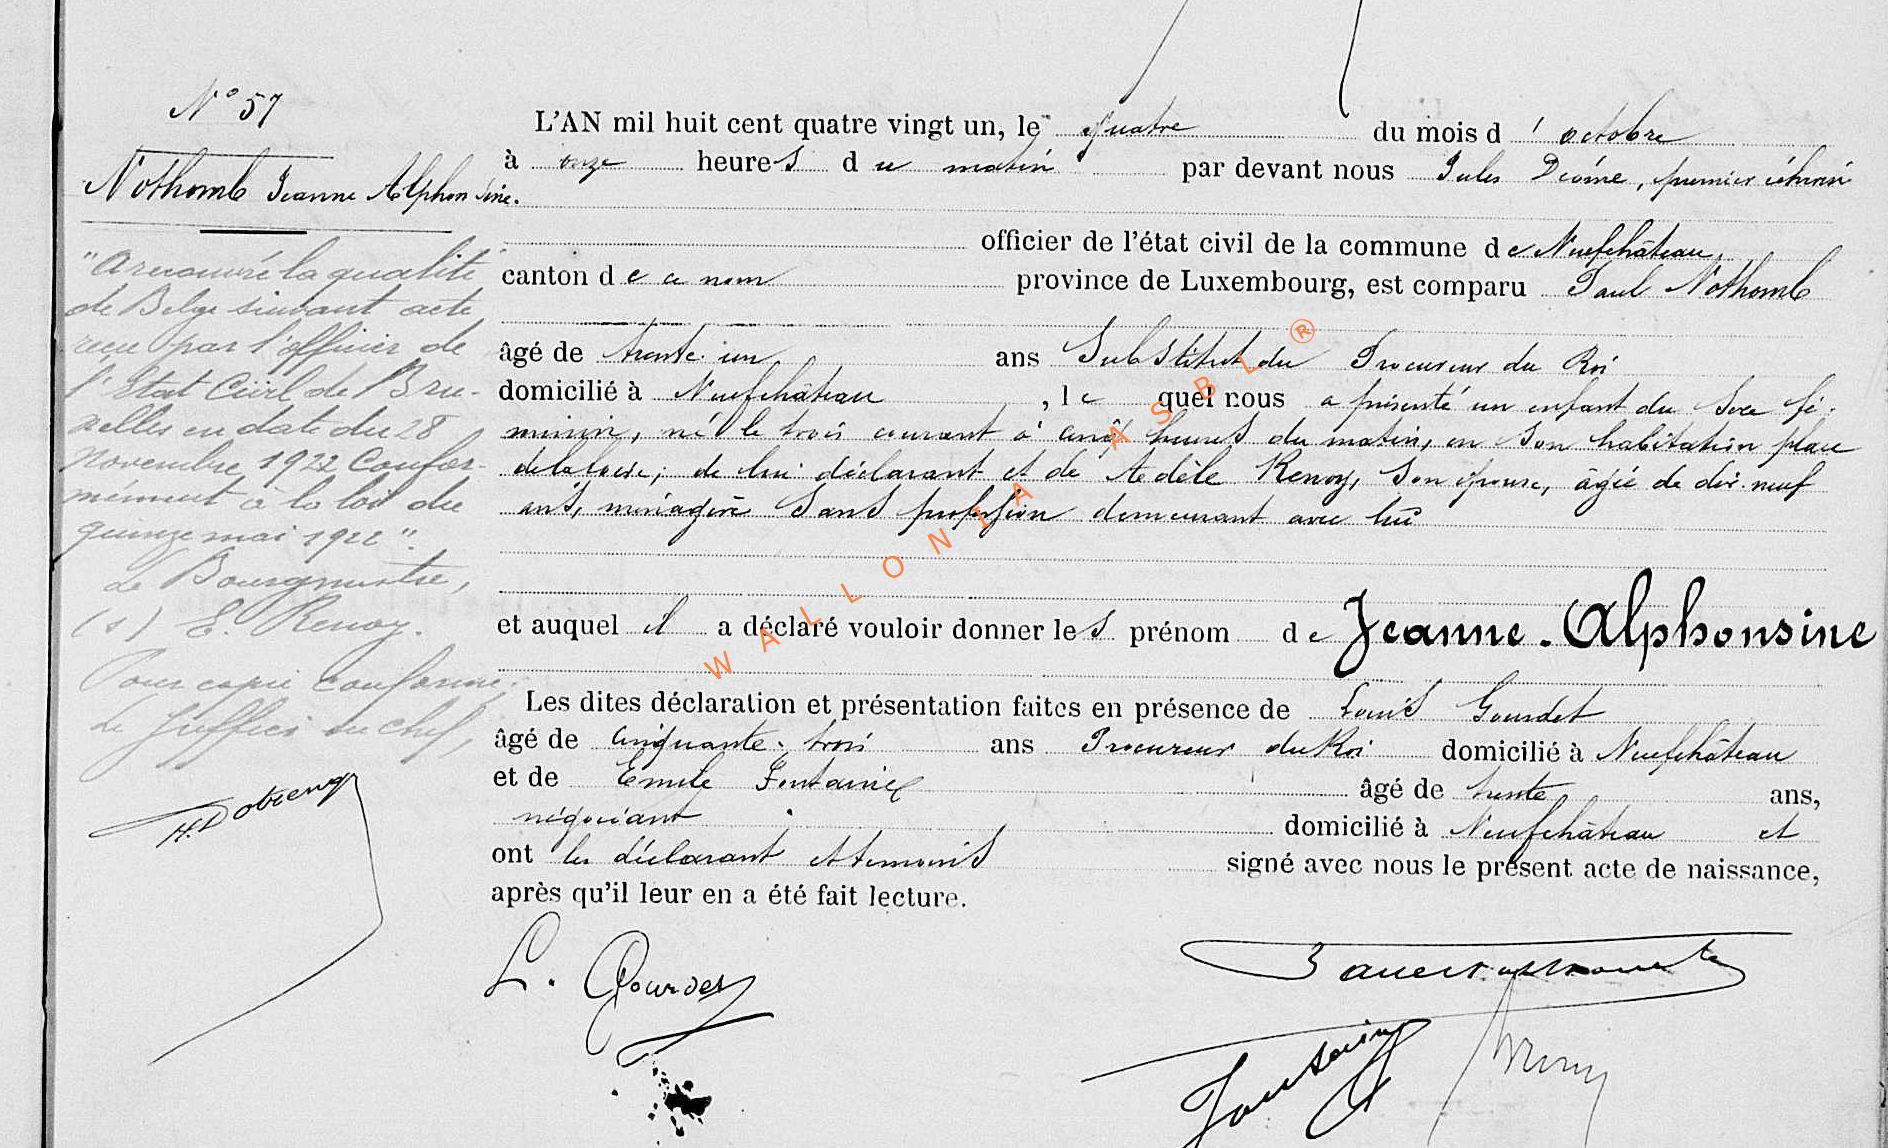 N° 57
Nothomb Jeanne Alphonsine.
"A recouvré la qualité
de Belge suivant acte
reçu par l'officier de
l'Etat Civil de Bru-
xelles en date du 28
novembre 1922 Confor-
mément à la loi du
quinze mai 1922".
Le Bourgmestre,
(s) E. Renoy.
Pour copie conforme,
Le Greffier en chef,
L'AN mil huit cent quatre vingt un, le quatre du mois d'octobre
à onze heures du matin par devant nous Jules premier échevin
officier de l'état civil de la commune de Neufchâteau,
canton de ce nom province de Luxembourg, est comparu Paul Nothomb
âgé de trente-un ans Substitut du Procureur du Roi
domicilié à Neufchâteau, lequel nous a présenté un enfant du sexe fé-
minin, né le trois courant à cinq heures du matin, en son habitation place
de lui déclarant et de Adèle Renoy, son épouse, âgée de dix-neuf
ans, ménagère sans profession demeurant avec lui
et auquel il a déclaré vouloir donner les prénom de Jeanne-Alphonsine
Les dites déclaration et présentation faites en présence de Louis Gourdet
âgé de cinquante-trois ans Procureur du Roi domicilié à Neufchâteau
et de Emile Fontaine âgé de trente ans,
négociant domicilié à Neufchâteau et
ont les déclarant et temoins signé avec nous le présent acte de naissance,
après qu'il leur en a été fait lecture.
L. Gourdet
WALLONIA ASBL ®